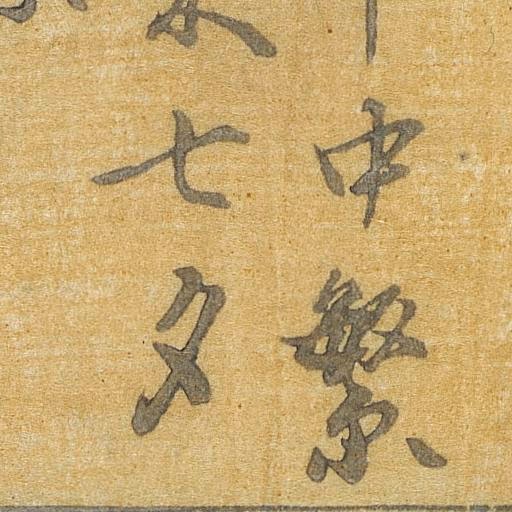 中繁
七夕